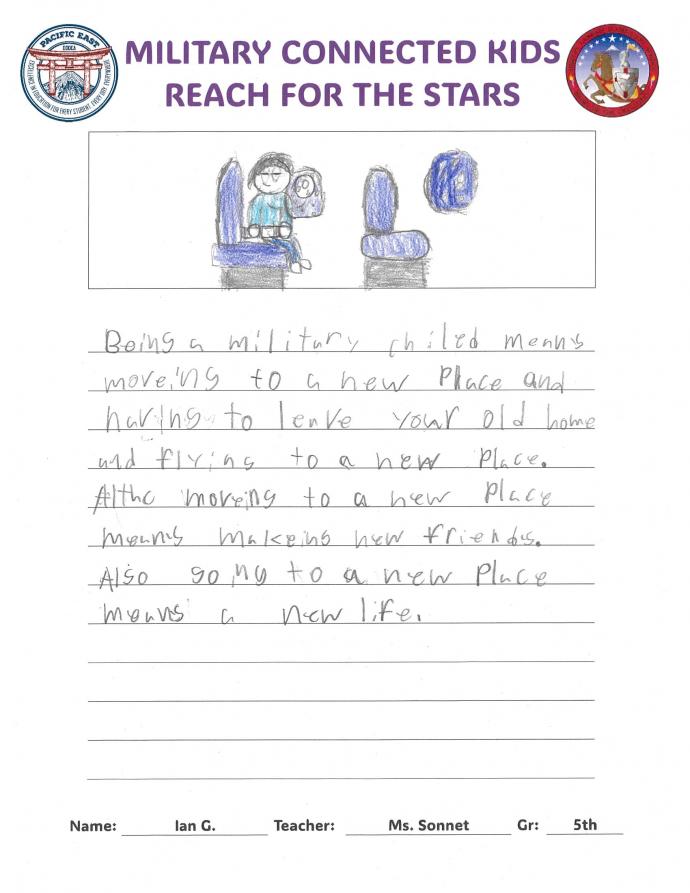 PACIFIC EAST
DODEA
EXCELLENCE IN EDUCATION FOR EVERY STUDENT, EVERY DAY, EVERYWHERE
MILITARY CONNECTED KIDS
REACH FOR THE STARS
Being a military chiled means
moveing to a new Place and
having to leave your old home
and flying to a new Place.
Altho moveing to a new Place
means makeing new friends.
Also going to a new Place
means a new life.
Name: Ian G. Teacher: Ms. Sonnet Gr: 5th